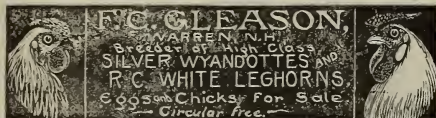 F.C. GLEASON,
WARREN, N.H.
Breeder of High Class
SILVER WYANDOTTES AND
R.C. WHITE LEGHORNS.
Eggs and Chicks For Sale
Circular free.